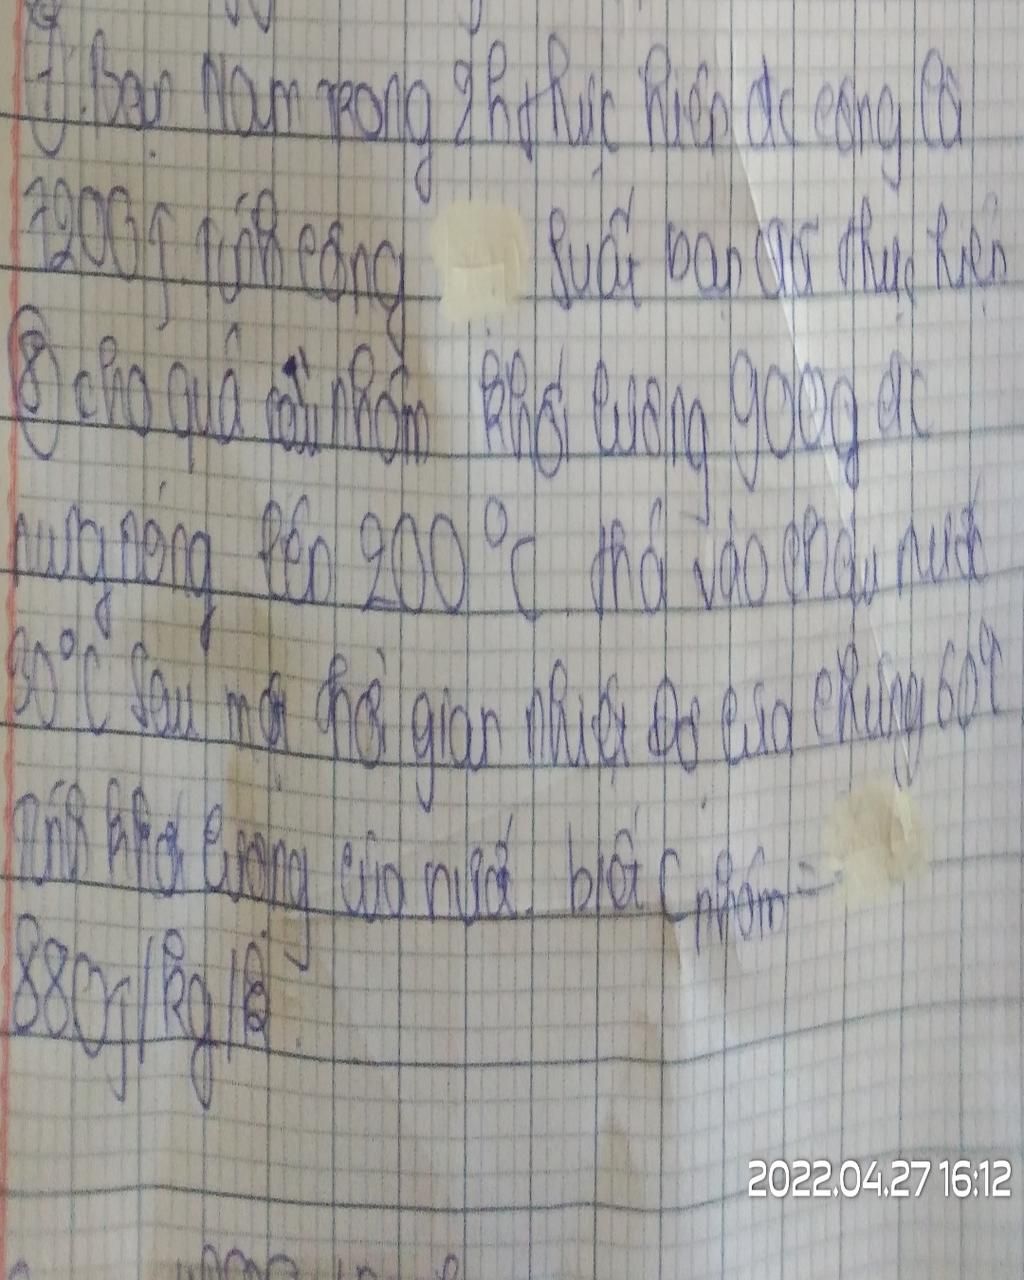 7. Bạn Nam trong 2h thực hiện đc công là
7200J tính công suất bạn đã thực hiện
8 cho quả cầu nhôm khối lượng 900g đc
nung nóng lên 200°C thả vào chậu nước
30°C Sau một thời gian nhiệt độ của chúng 60°C
Tính khối lượng của nước. biết Cnhôm =
880J/kg/k
2022.04.27 16:12